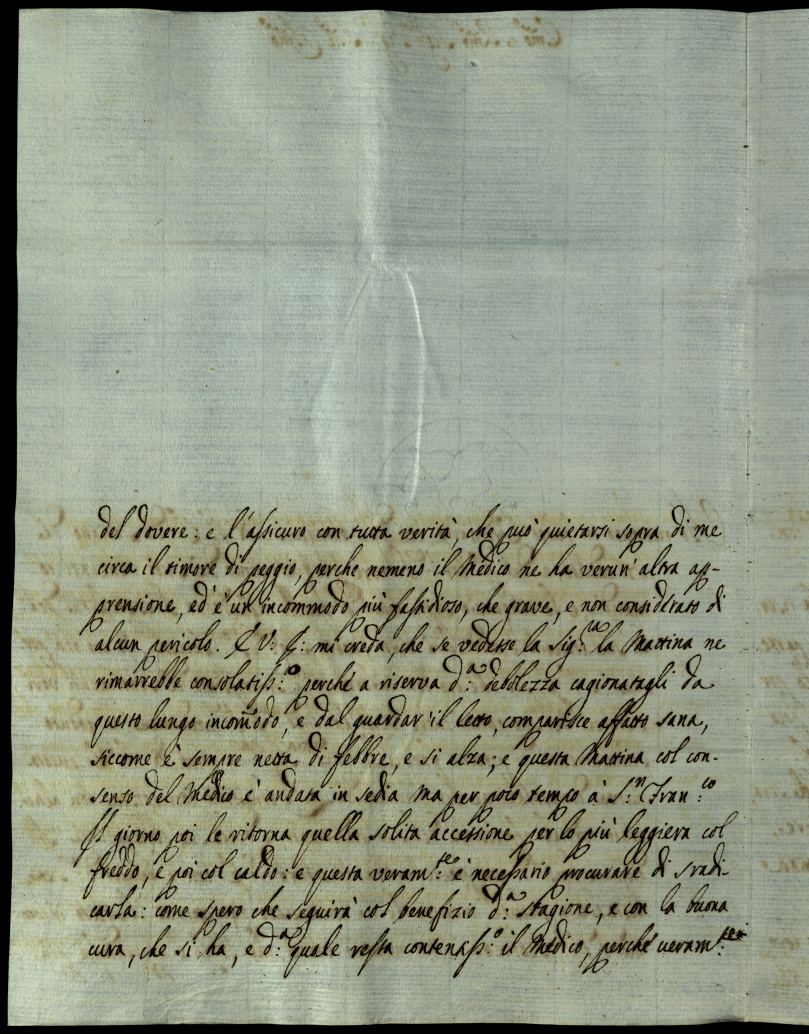 del dovere: e l'assicuro con tutta verità, che può quietarsi sopra di me
circa il timore di peggio, perche nemeno il Medico ne ha verun'altra ap-
prensione, ed è un incommodo più fastidioso, che grave, e non considerato di
alcun pericolo. E V: E: mi creda, che se vedesse la Sig:ra la Mattina ne
rimarrebbe consolatiss:o perché a riserva d:a debolezza cagionatagli da
questo lungo incomodo, e dal guardar il letto, comparisce affatto sana,
siccome è sempre netta di febbre, e si alza; e questa Mattina col con-
senso del Medico è andata in sedia ma per poco tempo à S:n Fran:co
Il giorno poi le ritorna quella solita accessione per lo più leggiera col
freddo, e poi col caldo: e questa veram:te è necessario procurare di sradi-
carla: come spero che seguirà col benefizio d:a stagione, e con la buona
cura, che si ha, e d:a quale resta contentiss:o il Medico, perché veram:te